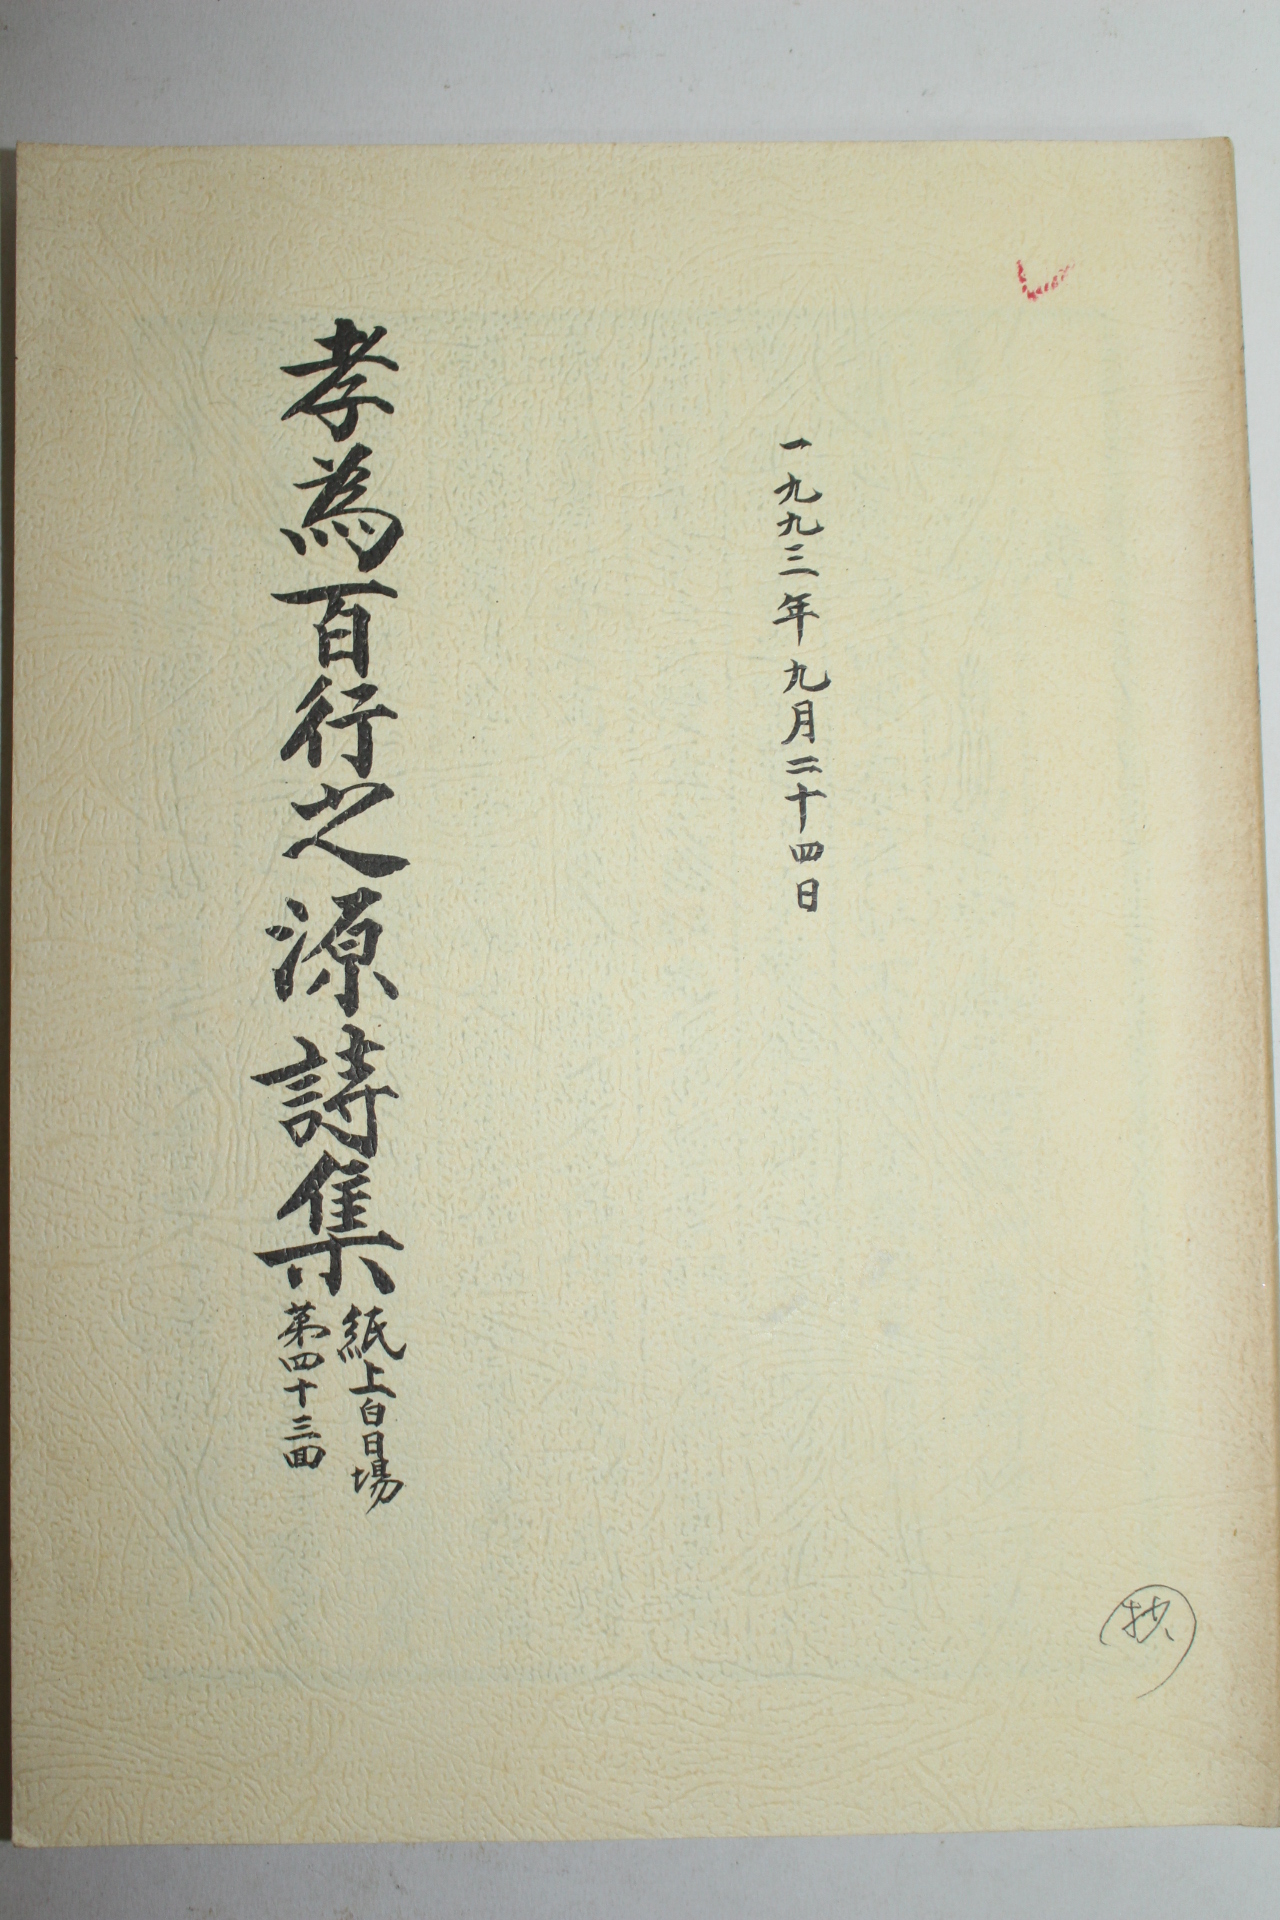 一九九三年九月二十四日
孝為百行之源詩集
紙上白日場
第四十三回
抄